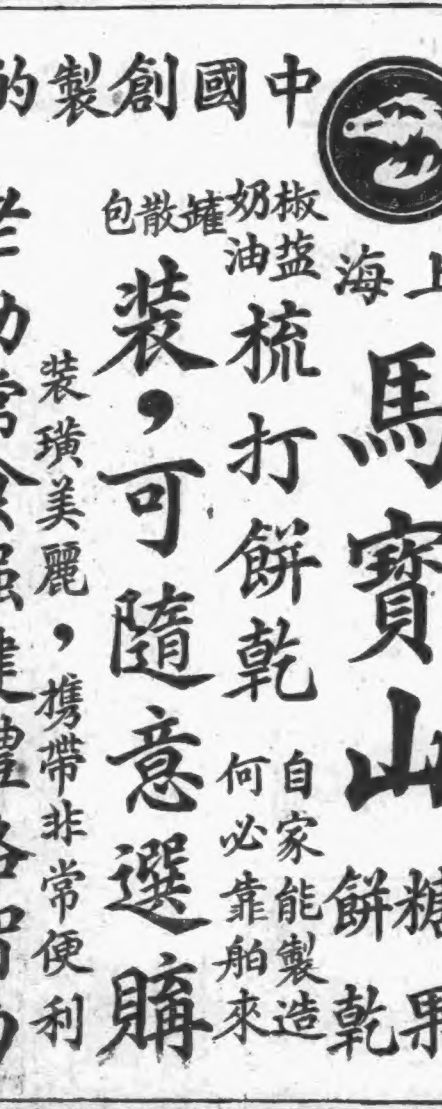 中國創製的
上海
馬寶山
糖果
餅乾
椒盐
奶油
梳打餅乾
自家能製造
何必靠舶來
罐散包
裝，可隨意選購
裝璜美麗，携帶非常便利